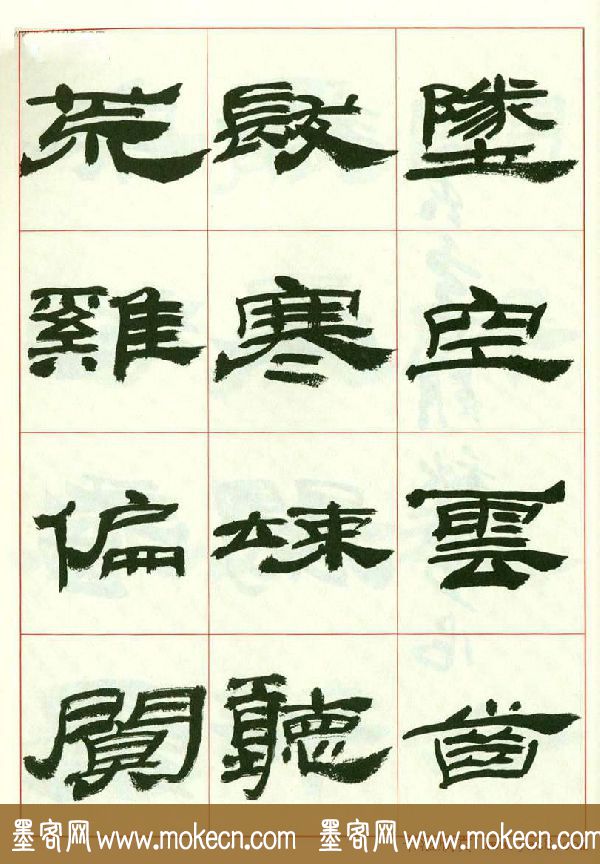 墜空雲齒
寒竦聽
荒雞偏
墨客网 www.mokecn.com 墨客网 www.mokecn.com